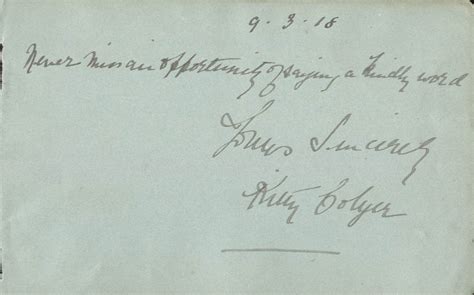 9.3.18
Never miss an opportunity of saying a kindly word
Yours Sincerely
Kitty Colyer